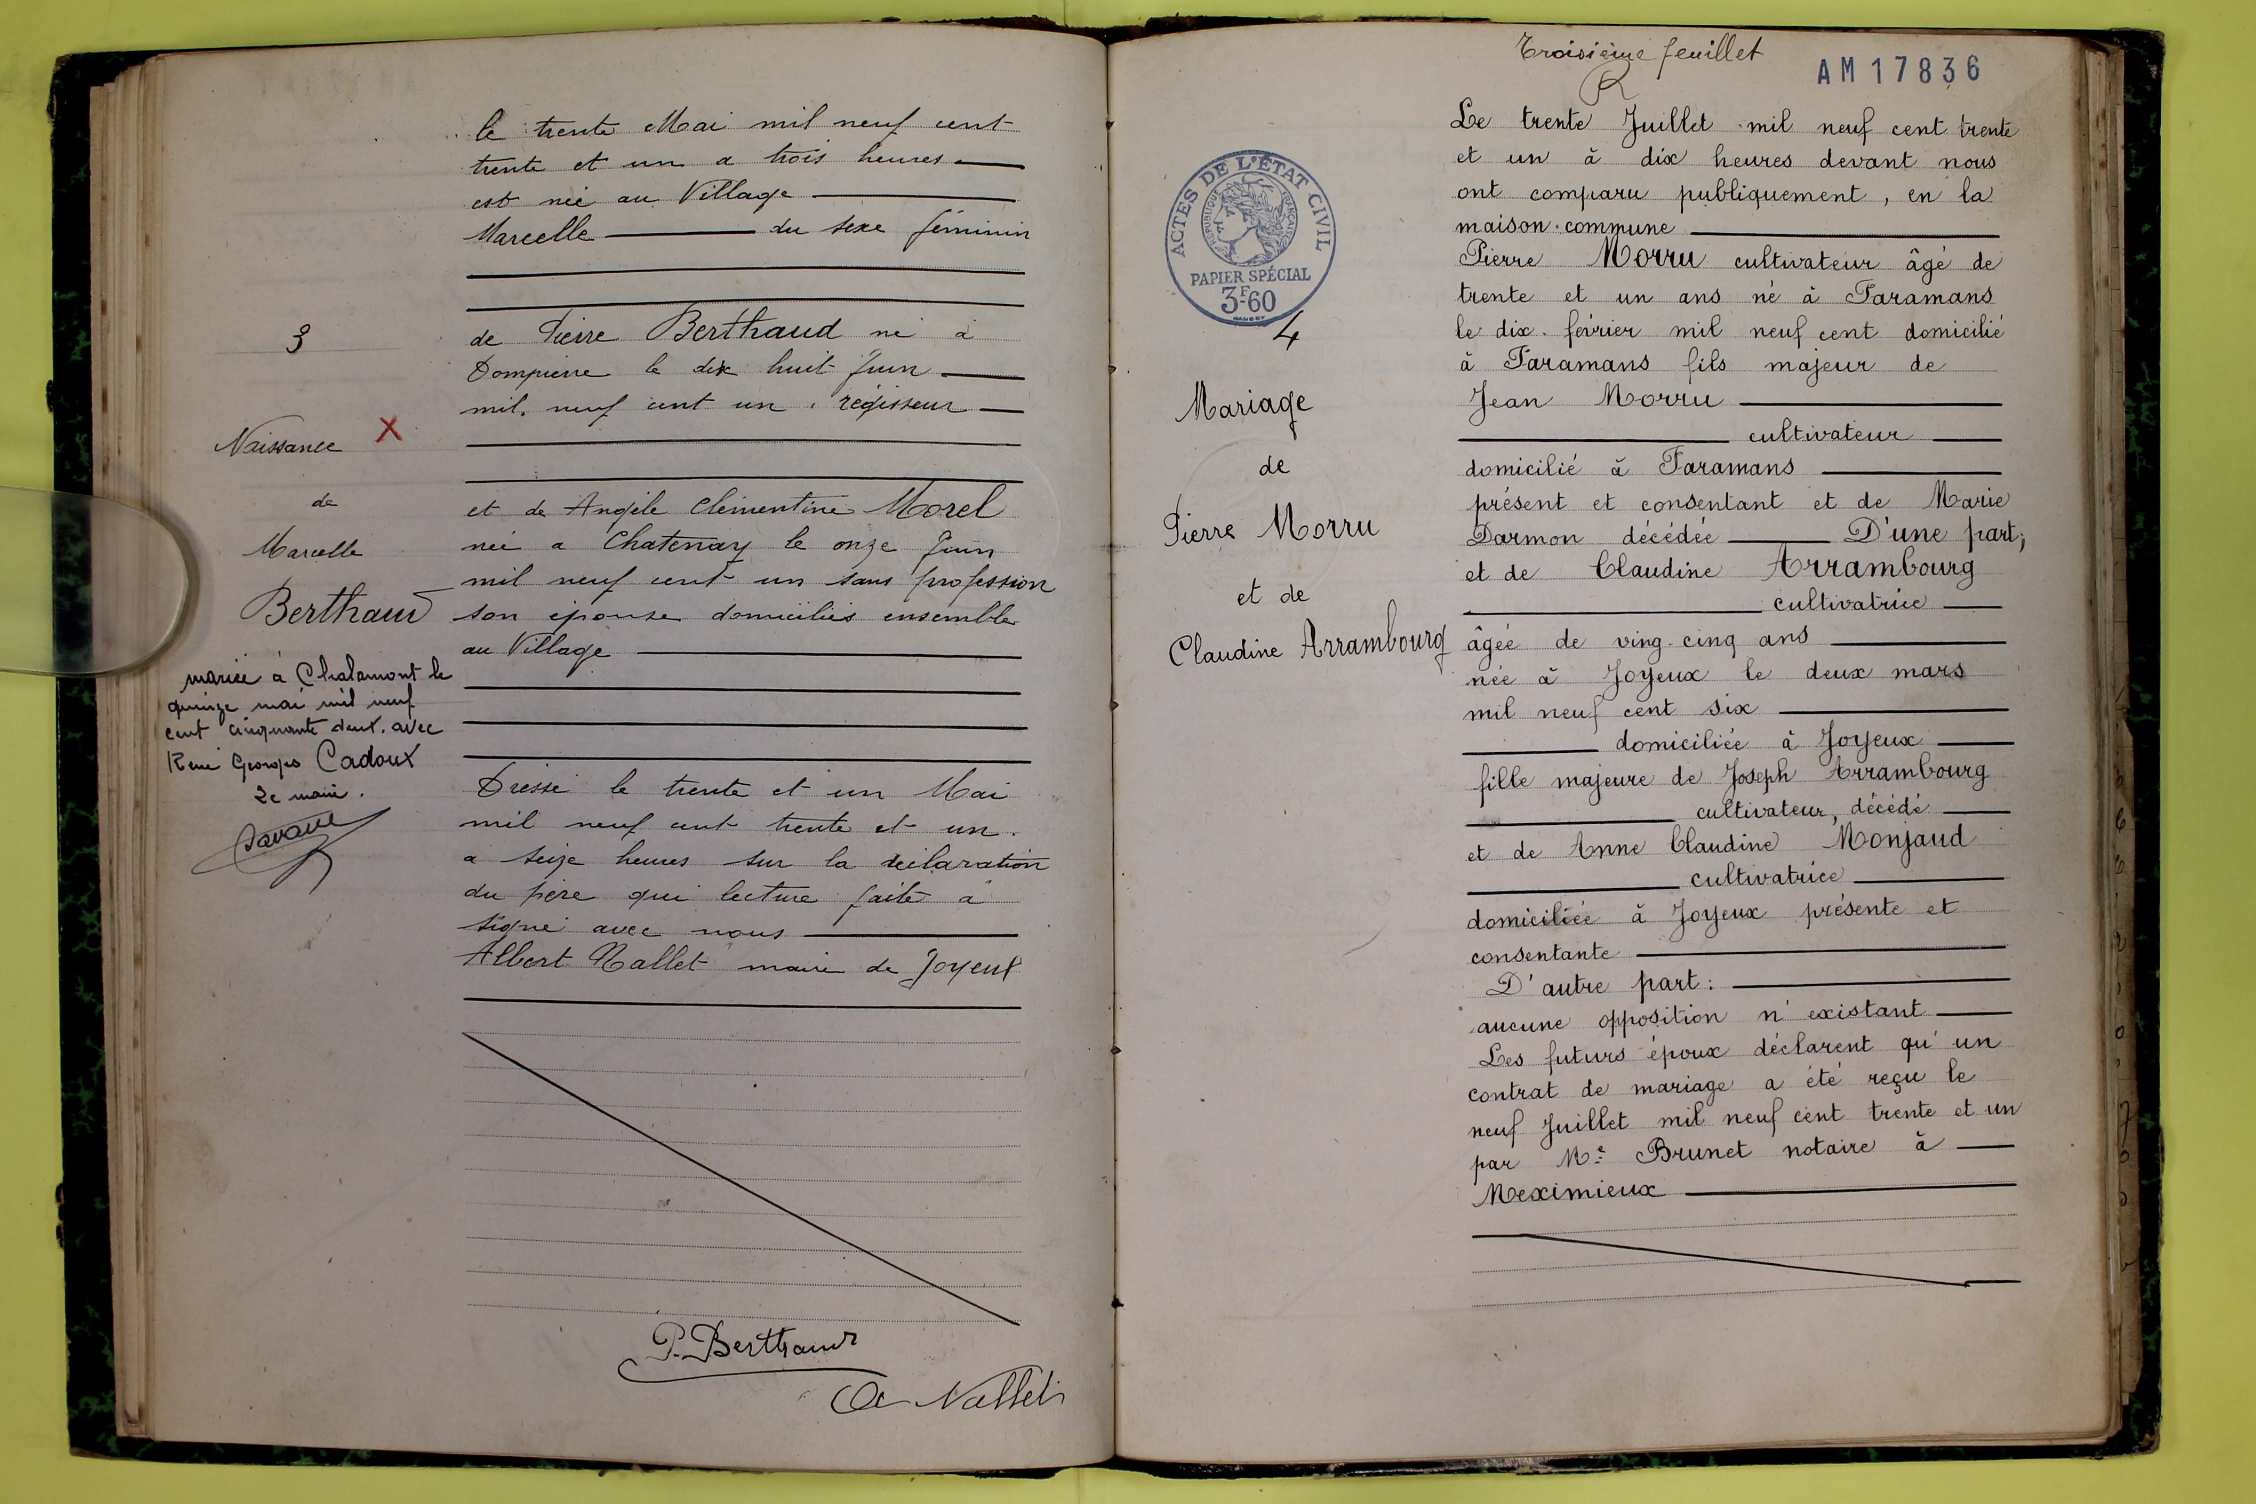 3
Naissance X
de
Marcelle
Berthaud
mariée à Chalamont le
quinze mai mil neuf
cent cinquante deux. avec
René Georges Cadoux
Le maire.
le trente Mai mil neuf cent
trente et un a trois heures
est née au Village
Marcelle du sexe féminin
de Pierre Berthaud né à
Dompierre le dix huit Juin
mil neuf cent un, régisseur
et de Angèle Clémentine Morel
née a Chatenay le onze Juin
mil neuf cent un sans profession
son épouse domiciliés ensemble
au Village
Dressé le trente et un Mai
mil neuf cent trente et un.
a seize heures sur la déclaration
du père qui lecture faite a
signé avec nous
Albert Nallet maire de Joyeux
P. Berthaud
Nallet
Troisième feuillet
AM17836
ACTES DE L'ÉTAT CIVIL
RÉPUBLIQUE FRANÇAISE
PAPIER SPÉCIAL
3F60
4
Mariage
de
Pierre Morru
et de
Claudine Arrambourg
Le trente Juillet mil neuf cent trente
et un à dix heures devant nous
ont comparu publiquement, en la
maison commune
Pierre Morru cultivateur âgé de
trente et un ans né à Faramans
le dix février mil neuf cent domicilié
à Faramans fils majeur de
Jean Morru
cultivateur
domicilié à Faramans
présent et consentant et de Marie
Darmon décédée D'une part;
et de Claudine Arrambourg
cultivatrice
âgée de ving-cinq ans
née à Joyeux le deux mars
mil neuf cent six
domiciliée à Joyeux
fille majeure de Joseph Arrambourg
cultivateur, décédé
et de Anne Claudine Monjaud
cultivatrice
domiciliée à Joyeux présente et
consentante
D'autre part:
aucune opposition n'existant
Les futurs époux déclarent qu'un
contrat de mariage a été reçu le
neuf Juillet mil neuf cent trente et un
par Me Brunet notaire à
Meximieux